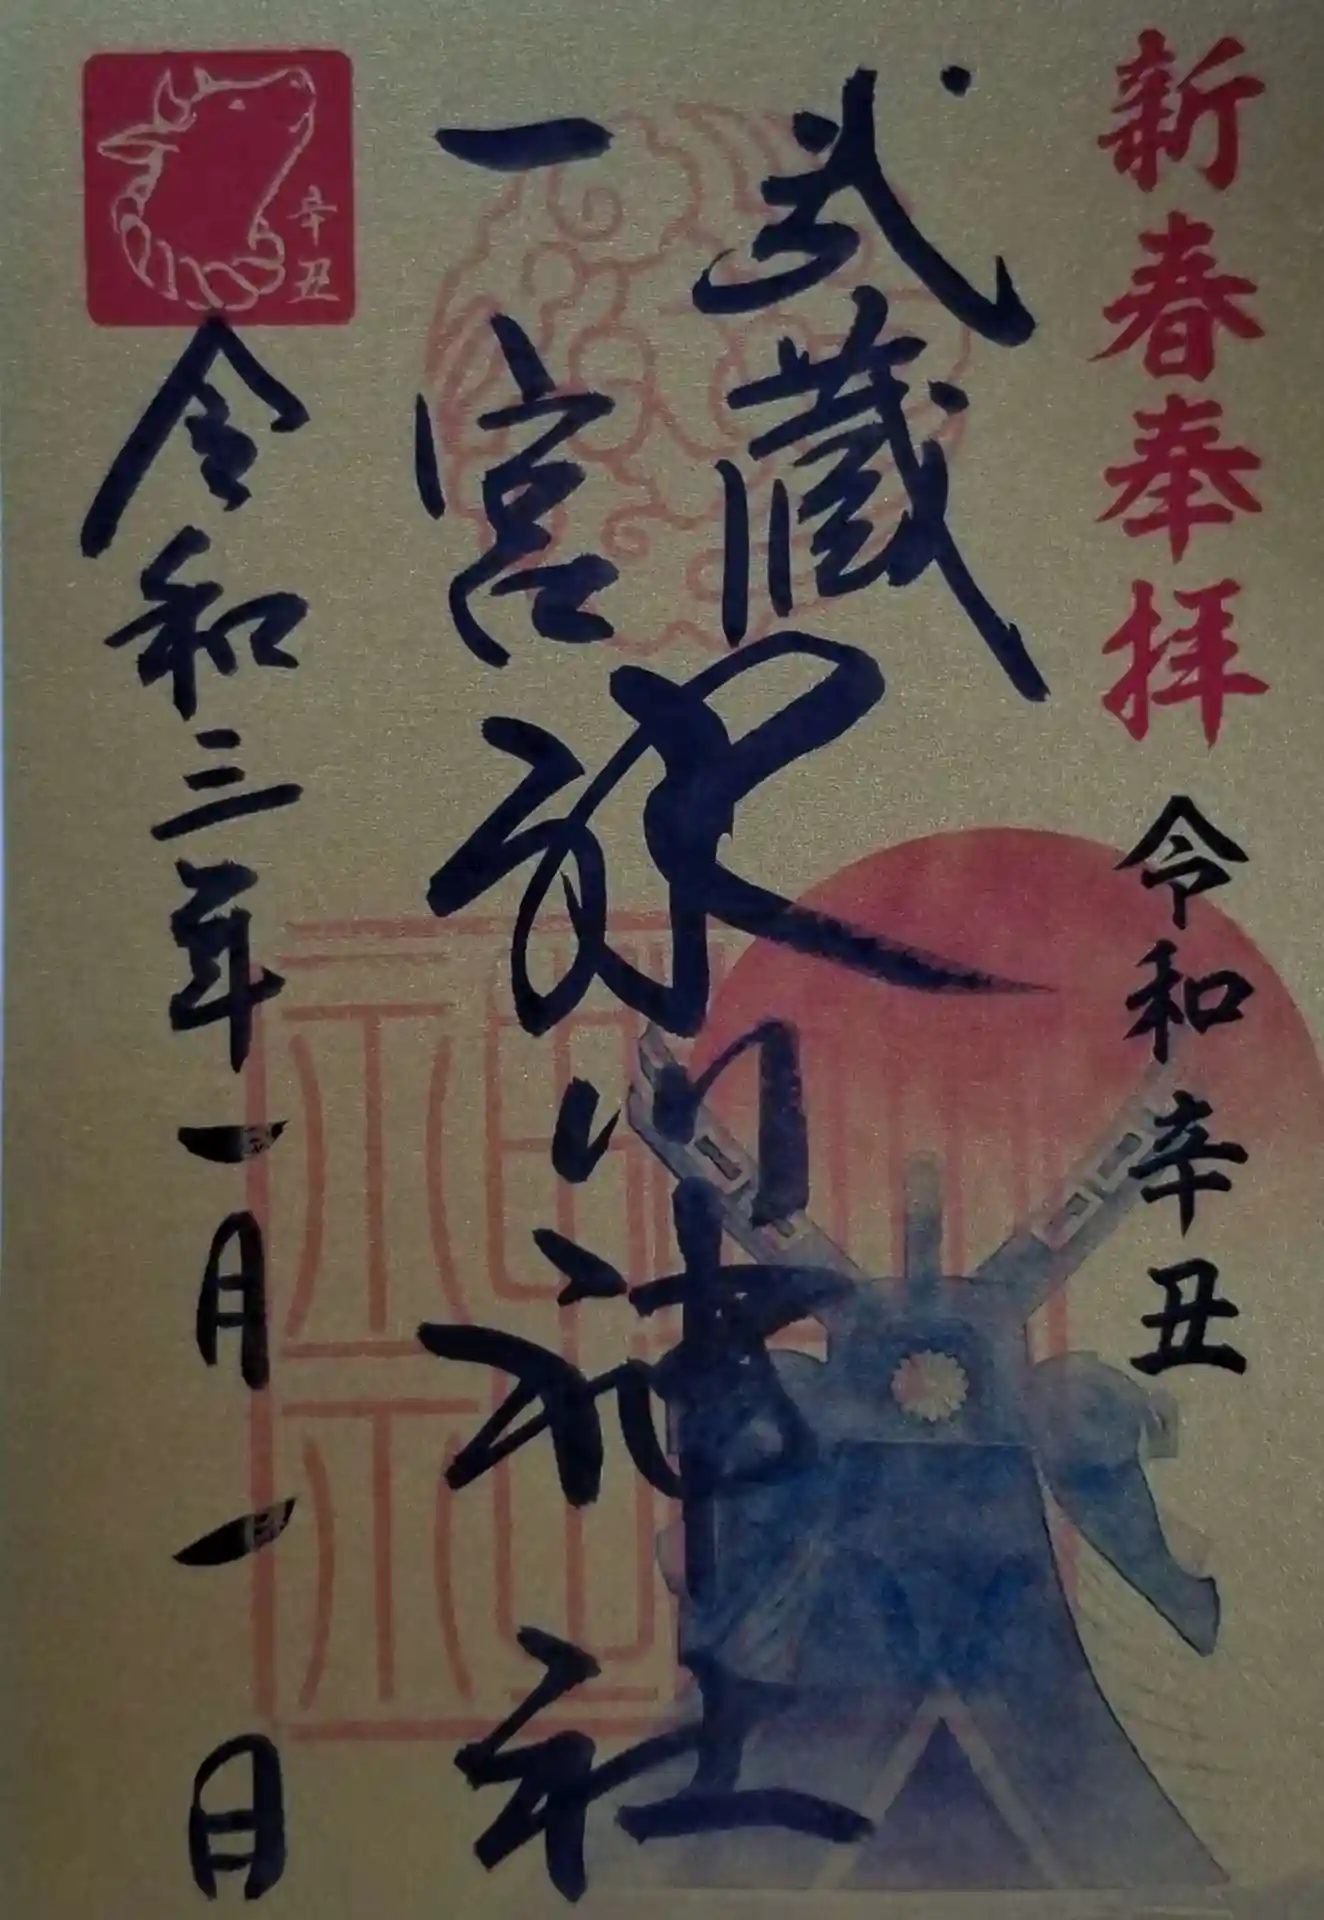 新春奉拝
令和辛丑
武蔵
一宮
氷川神社
令和三年一月一日
辛丑